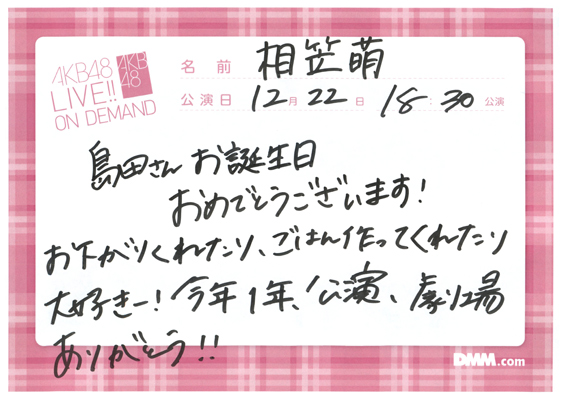 AKB48
LIVE!!
ON DEMAND
AKB
48
名前 相笠萌
公演日 12月22日 18:30公演
島田さんお誕生日
おめでとうございます!
お下がりくれたり、ごはん作ってくれたり
大好きー!今年1年、公演、劇場
ありがとう!!
DMM.com